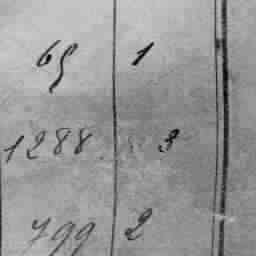 65 1
1288 3
799 2